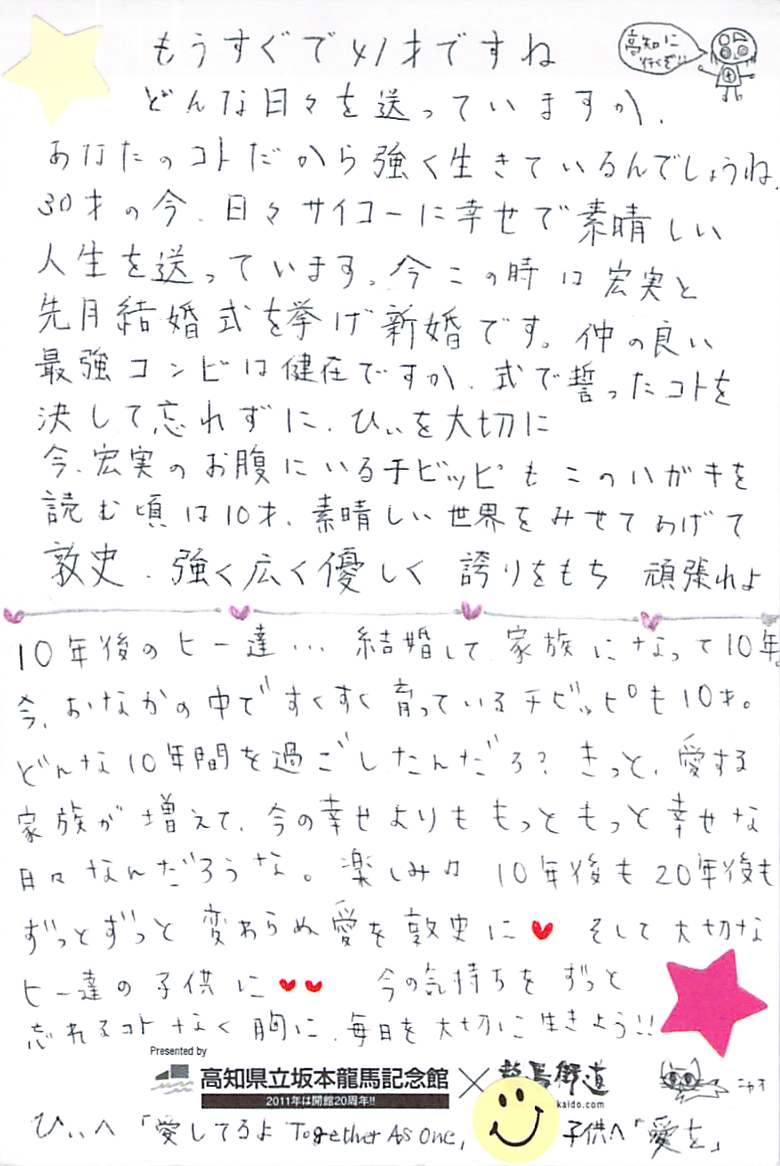 もうすぐで41才ですね
高知に
行くぞ!!
どんな日々を送っていますか.
あなたのコトだから強く生きているんでしょうね.
30才の今、日々サイコーに幸せで素晴しい
人生を送っています。今この時は宏実と
先月結婚式を挙げ新婚です。仲の良い
最強コンビは健在ですか、式で誓ったコトを
決して忘れずに、ひぃを大切に
今、宏実のお腹にいるチビッピもこのハガキを
読む頃は10才、素晴しい世界をみせてあげて
敦史、強く広く優しく 誇りをもち 頑張れよ
10年後のヒー達… 結婚して家族になって10年。
今、おなかの中ですくすく育っているチビッピも10才。
どんな10年間を過ごしたんだろ？きっと、愛する
家族が増えて、今の幸せよりももっともっと幸せな
日々なんだろうな。楽しみ♫ 10年後も20年後も
ずっとずっと変わらぬ愛を敦史に♥ そして大切な
ヒー達の子供に♥♥ 今の気持ちをずっと
忘れるコトなく胸に、毎日を大切に生きよう!!
Presented by
高知県立坂本龍馬記念館×龍馬街道
2011年は開館20周年!!
kaido.com
ニャオ
ひぃへ「愛してるよ Together As One」
子供へ「愛を」